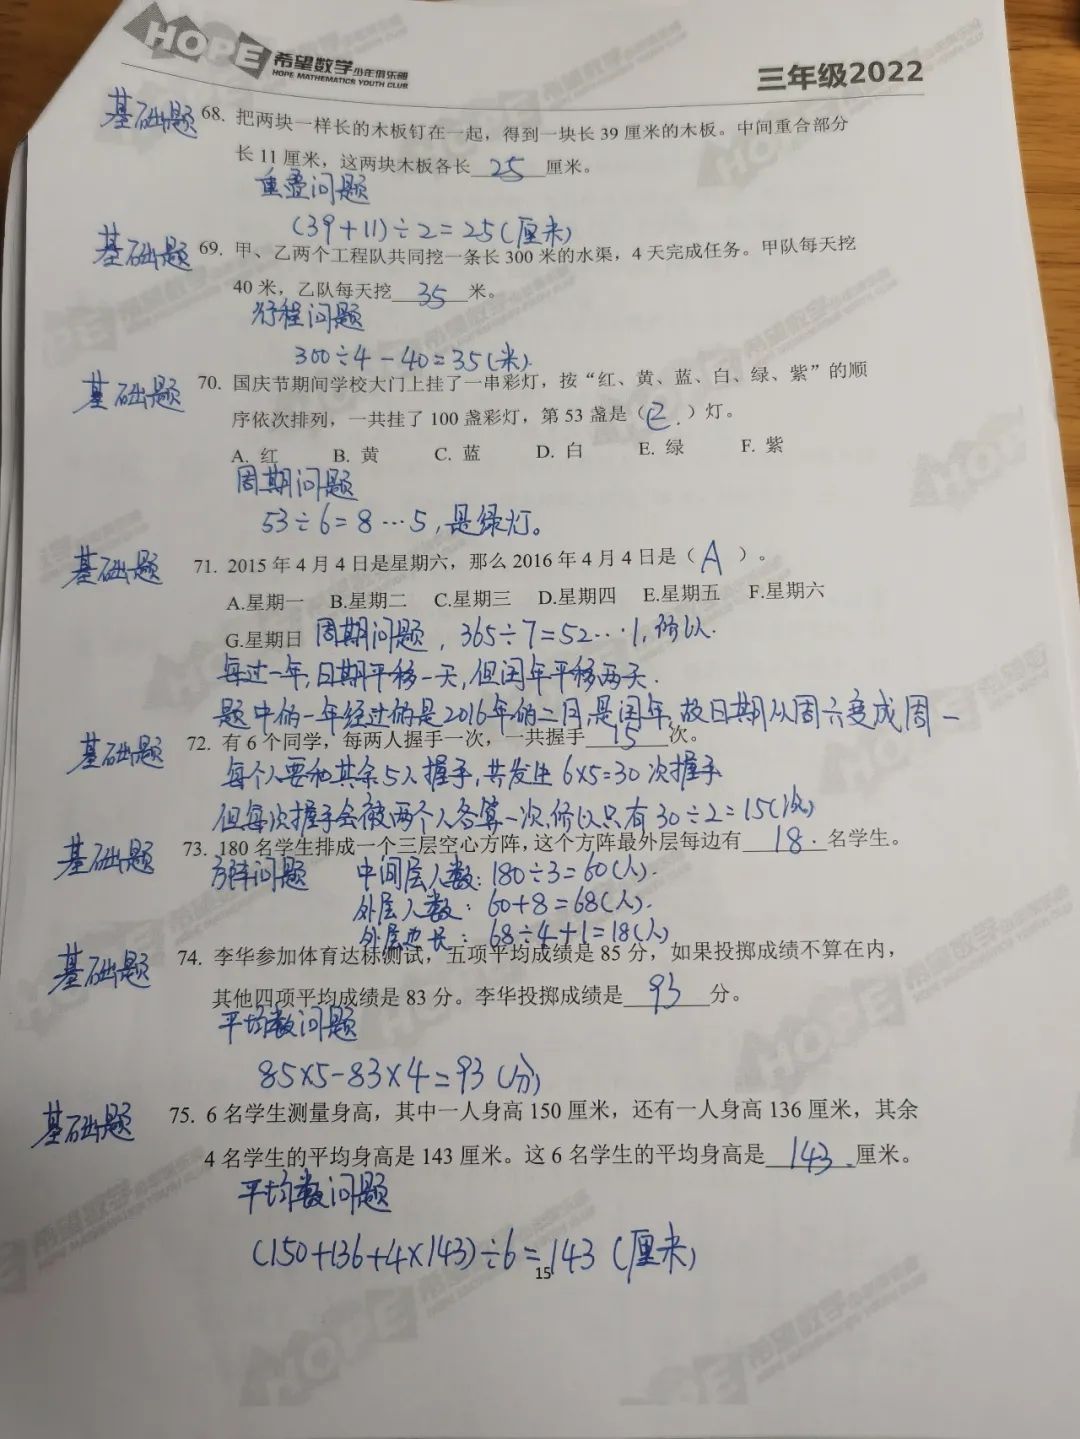 HOPE 希望数学少年俱乐部
HOPE MATHEMATICS YOUTH CLUB
三年级2022
基础题 68. 把两块一样长的木板钉在一起，得到一块长 39 厘米的木板。中间重合部分
长 11 厘米，这两块木板各长 25 厘米。
重叠问题
(39+11)÷2=25(厘米)
基础题 69. 甲、乙两个工程队共同挖一条长 300 米的水渠，4 天完成任务。甲队每天挖
40 米，乙队每天挖 35 米。
行程问题
300÷4-40=35(米).
基础题 70. 国庆节期间学校大门上挂了一串彩灯，按“红、黄、蓝、白、绿、紫”的顺
序依次排列，一共挂了 100 盏彩灯，第 53 盏是（E.）灯。
A. 红 B. 黄 C. 蓝 D. 白 E. 绿 F. 紫
周期问题
53÷6=8…5,是绿灯。
基础题 71. 2015 年 4 月 4 日是星期六，那么 2016 年 4 月 4 日是（ A ）。
A.星期一 B.星期二 C.星期三 D.星期四 E.星期五 F.星期六
G.星期日 周期问题，365÷7=52…1,所以.
每过一年,日期平移一天,但闰年平移两天.
题中的一年经过的是2016年的二月,是闰年,故日期从周六变成周一
基础题 72. 有 6 个同学，每两人握手一次，一共握手 15 次。
每个人要和其余5人握手,共发生6×5=30次握手
但每次握手会被两个人各算一次,所以只有30÷2=15(次)
基础题 73. 180 名学生排成一个三层空心方阵，这个方阵最外层每边有 18. 名学生。
方阵问题 中间层人数：180÷3=60(人).
外层人数：60+8=68(人).
外层边长：68÷4+1=18(人)
基础题 74. 李华参加体育达标测试，五项平均成绩是 85 分，如果投掷成绩不算在内，
其他四项平均成绩是 83 分。李华投掷成绩是 93 分。
平均数问题
85×5-83×4=93(分)
基础题 75. 6 名学生测量身高，其中一人身高 150 厘米，还有一人身高 136 厘米，其余
4 名学生的平均身高是 143 厘米。这 6 名学生的平均身高是 143. 厘米。
平均数问题
(150+136+4×143)÷6=143(厘米)
15